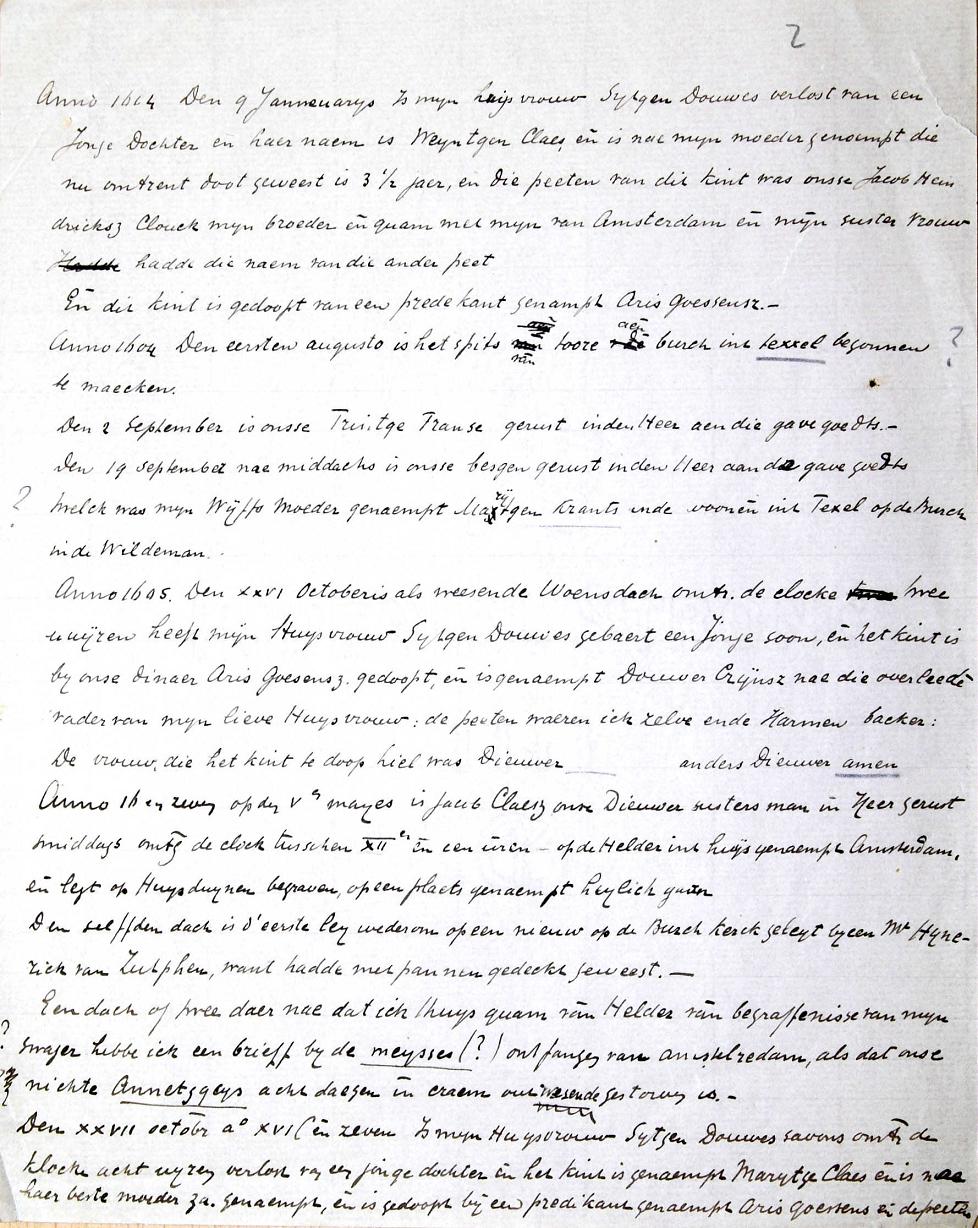 2
Anno 1604 Den 9 Jannenuarys Is myn huijs vrouw Sytgen Douwes verlost van een
Jonge Dochter en haer naem is Weyntgen Claes, en is nae myn moeder genoempt die
nu omtrent doot geweest is 3 1/2 jaer, en die peeten van dit kint was onsse Jacob Hein
dricksz Clouck myn broeder en quam met myn van Amsterdam en mijn suster vrouw
hadde die naem van die ander peet
En dit kint is gedoopt van een predekant genampt Aris Goessensz.-
Anno 1604 Den eersten augusto is het spits van toore aen burch int texxel begonnen ?
te maecken.
Den 2 September is onsse Trijntge Franse gerust inden Heer aen die gave goedts.-
Den 19 September nae middachs is onsse besgen gerust inden Heer aan de gave goedts
? twelck was myn Wijffs moeder genaempt Marijtgen Krants ende woonen int Texel op de Burch
in de Wildeman.
Anno 1605. Den xxvi Octoberis als weesende Woensdach omtr. de clocke twee
uuijren heeft mijn Huysvrouw Sytgen Douwes gebaert een Jonge soon, en het kint is
by onse dinaer Aris Goesensz. gedoopt, en is genaempt Douwer Crijnsz nae die overleede
vader van myn lieve Huysvrouw: de peeten waeren ick zelve ende Harmen backer:
De vrouw, die het kint te doop hiel was Dieuwer anders Dieuwer amen
Anno 16 en zeven op den Ven mayes is Jacob Claesz onse Dieuwer susters man in Heer gerust
smiddags omtr de clock tusschen XIIer en een uren - op de Helder int huijs genaempt Amsterdam,
en legt op Huysduynen begraven, op een plaets genaempt heylich
Den selffden dach is d'eerste ley wederom op een nieuw op de Burch kerck geleyt by een Mr Hyne-
rick van Zutphen, want hadde met pannen gedeckt geweest. —
Een dach of twee daer nae dat ick thuys quam van Helder van begraffenisse van myn
? swager hebbe ick een brieff by de meysses (?) ontfangen van amstelredam, als dat onse
nichte Annetsgeys acht daegen in craem wesende gestorven is.-
Den xxvii octobr ao XVI( en zeven Is myn Huysvrouw Sytgen Douwes savons omtr de
klocke acht uyren verlost van een jonge dochter en het kint is genaempt Marytge Claes en is nae
haer beste moeder za. genaempt, en is gedoopt bij een predikant genaempt Aris Goessens en de peeten